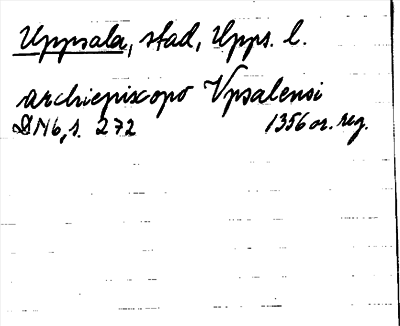 Uppsala, stad, Upps. l.
archiepixcopo Vpsalensi
DN6, s. 272 1356 or. reg.